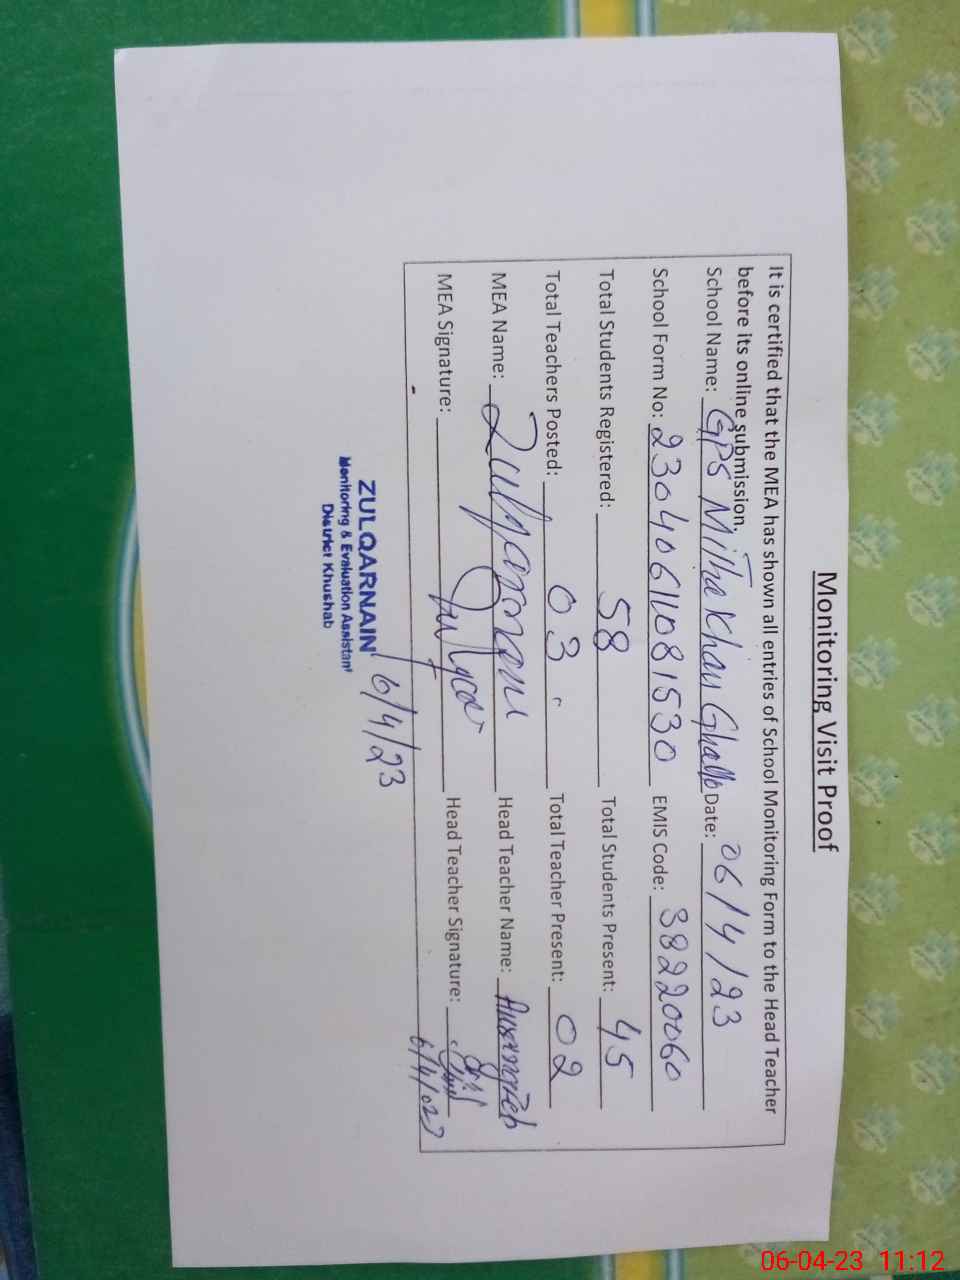 Monitoring Visit Proof
It is certified that the MEA has shown all entries of School Monitoring Form to the Head Teacher
before its online submission.
School Name: GPS Mitha Khan Date: 06/4/23
School Form No: 2304061081530 EMIS Code: 38220060
Total Students Registered: 58 Total Students Present: 45
Total Teachers Posted: 03 Total Teacher Present: 02
MEA Name: Zulqarnain Head Teacher Name:
MEA Signature: Head Teacher Signature:
6/4/23
ZULQARNAIN
Monitoring & Evaluation Assistant
District Khushab
06-04-23 11:12